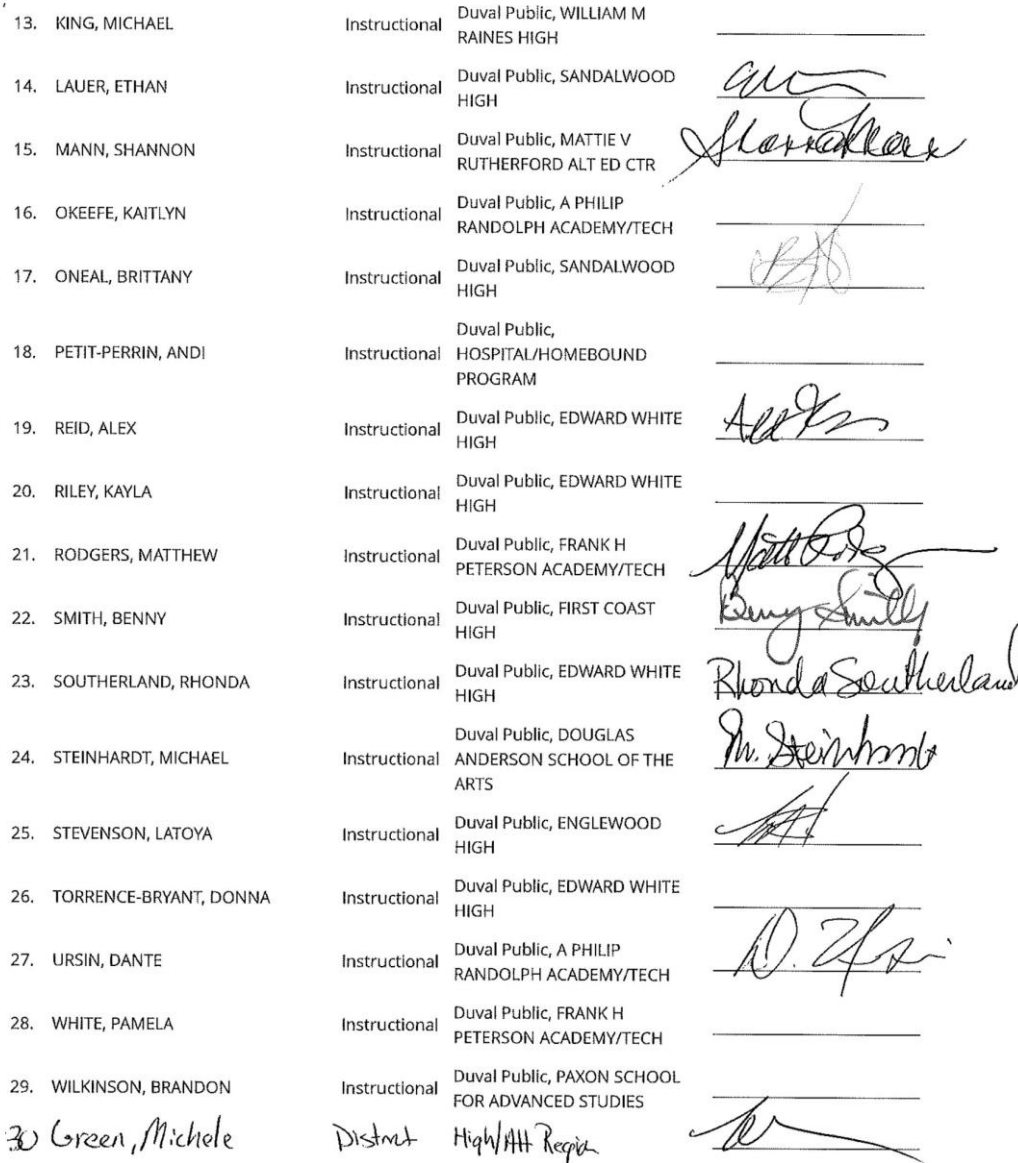 13. KING, MICHAEL Instructional Duval Public, WILLIAM M
RAINES HIGH
14. LAUER, ETHAN Instructional Duval Public, SANDALWOOD
HIGH
15. MANN, SHANNON Instructional Duval Public, MATTIE V
RUTHERFORD ALT ED CTR
16. OKEEFE, KAITLYN Instructional Duval Public, A PHILIP
RANDOLPH ACADEMY/TECH
17. ONEAL, BRITTANY Instructional Duval Public, SANDALWOOD
HIGH
18. PETIT-PERRIN, ANDI Instructional Duval Public,
HOSPITAL/HOMEBOUND
PROGRAM
19. REID, ALEX Instructional Duval Public, EDWARD WHITE
HIGH
20. RILEY, KAYLA Instructional Duval Public, EDWARD WHITE
HIGH
21. RODGERS, MATTHEW Instructional Duval Public, FRANK H
PETERSON ACADEMY/TECH
22. SMITH, BENNY Instructional Duval Public, FIRST COAST
HIGH Benny Smith
23. SOUTHERLAND, RHONDA Instructional Duval Public, EDWARD WHITE
HIGH Rhonda Southerland
24. STEINHARDT, MICHAEL Instructional Duval Public, DOUGLAS
ANDERSON SCHOOL OF THE
ARTS M. Steinhardt
25. STEVENSON, LATOYA Instructional Duval Public, ENGLEWOOD
HIGH
26. TORRENCE-BRYANT, DONNA Instructional Duval Public, EDWARD WHITE
HIGH
27. URSIN, DANTE Instructional Duval Public, A PHILIP
RANDOLPH ACADEMY/TECH
28. WHITE, PAMELA Instructional Duval Public, FRANK H
PETERSON ACADEMY/TECH
29. WILKINSON, BRANDON Instructional Duval Public, PAXON SCHOOL
FOR ADVANCED STUDIES
30 Green, Michele District High/Alt Region